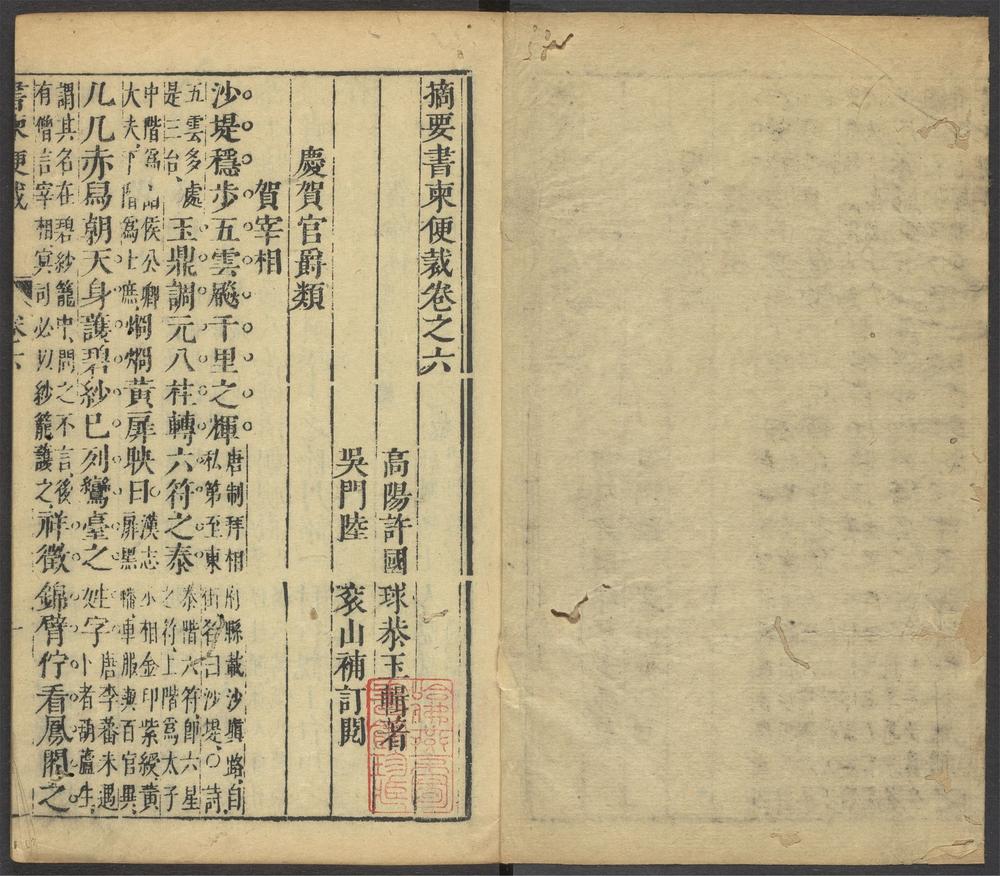 摘要書柬便裁卷之六
高陽許國球恭玉輯著
吳門陸袞山補訂閱
哈佛燕京圖
書館珍藏
慶賀官爵類
賀宰相
沙堤穩步五雲颺千里之輝唐制拜相府縣載沙塡路自私第至東街名曰沙堤○詩
五雲多處是三台玉鼎調元八柱轉六符之泰泰階六符卽六星之符上階爲太子
中階爲諸侯公卿大夫下階爲士庶烱烱黃扉映日漢志小相金印紫綬黃扉黑轓車服與百官異
几几赤舄朝天身護碧紗已列鸞臺之姓字唐李蕃未遇卜者葫蘆生
謂其名在碧紗籠中問之不言後有僧言宰相冥司必以紗籠護之祥徵錦臂佇看鳳閣之
書柬便裁 卷六 一